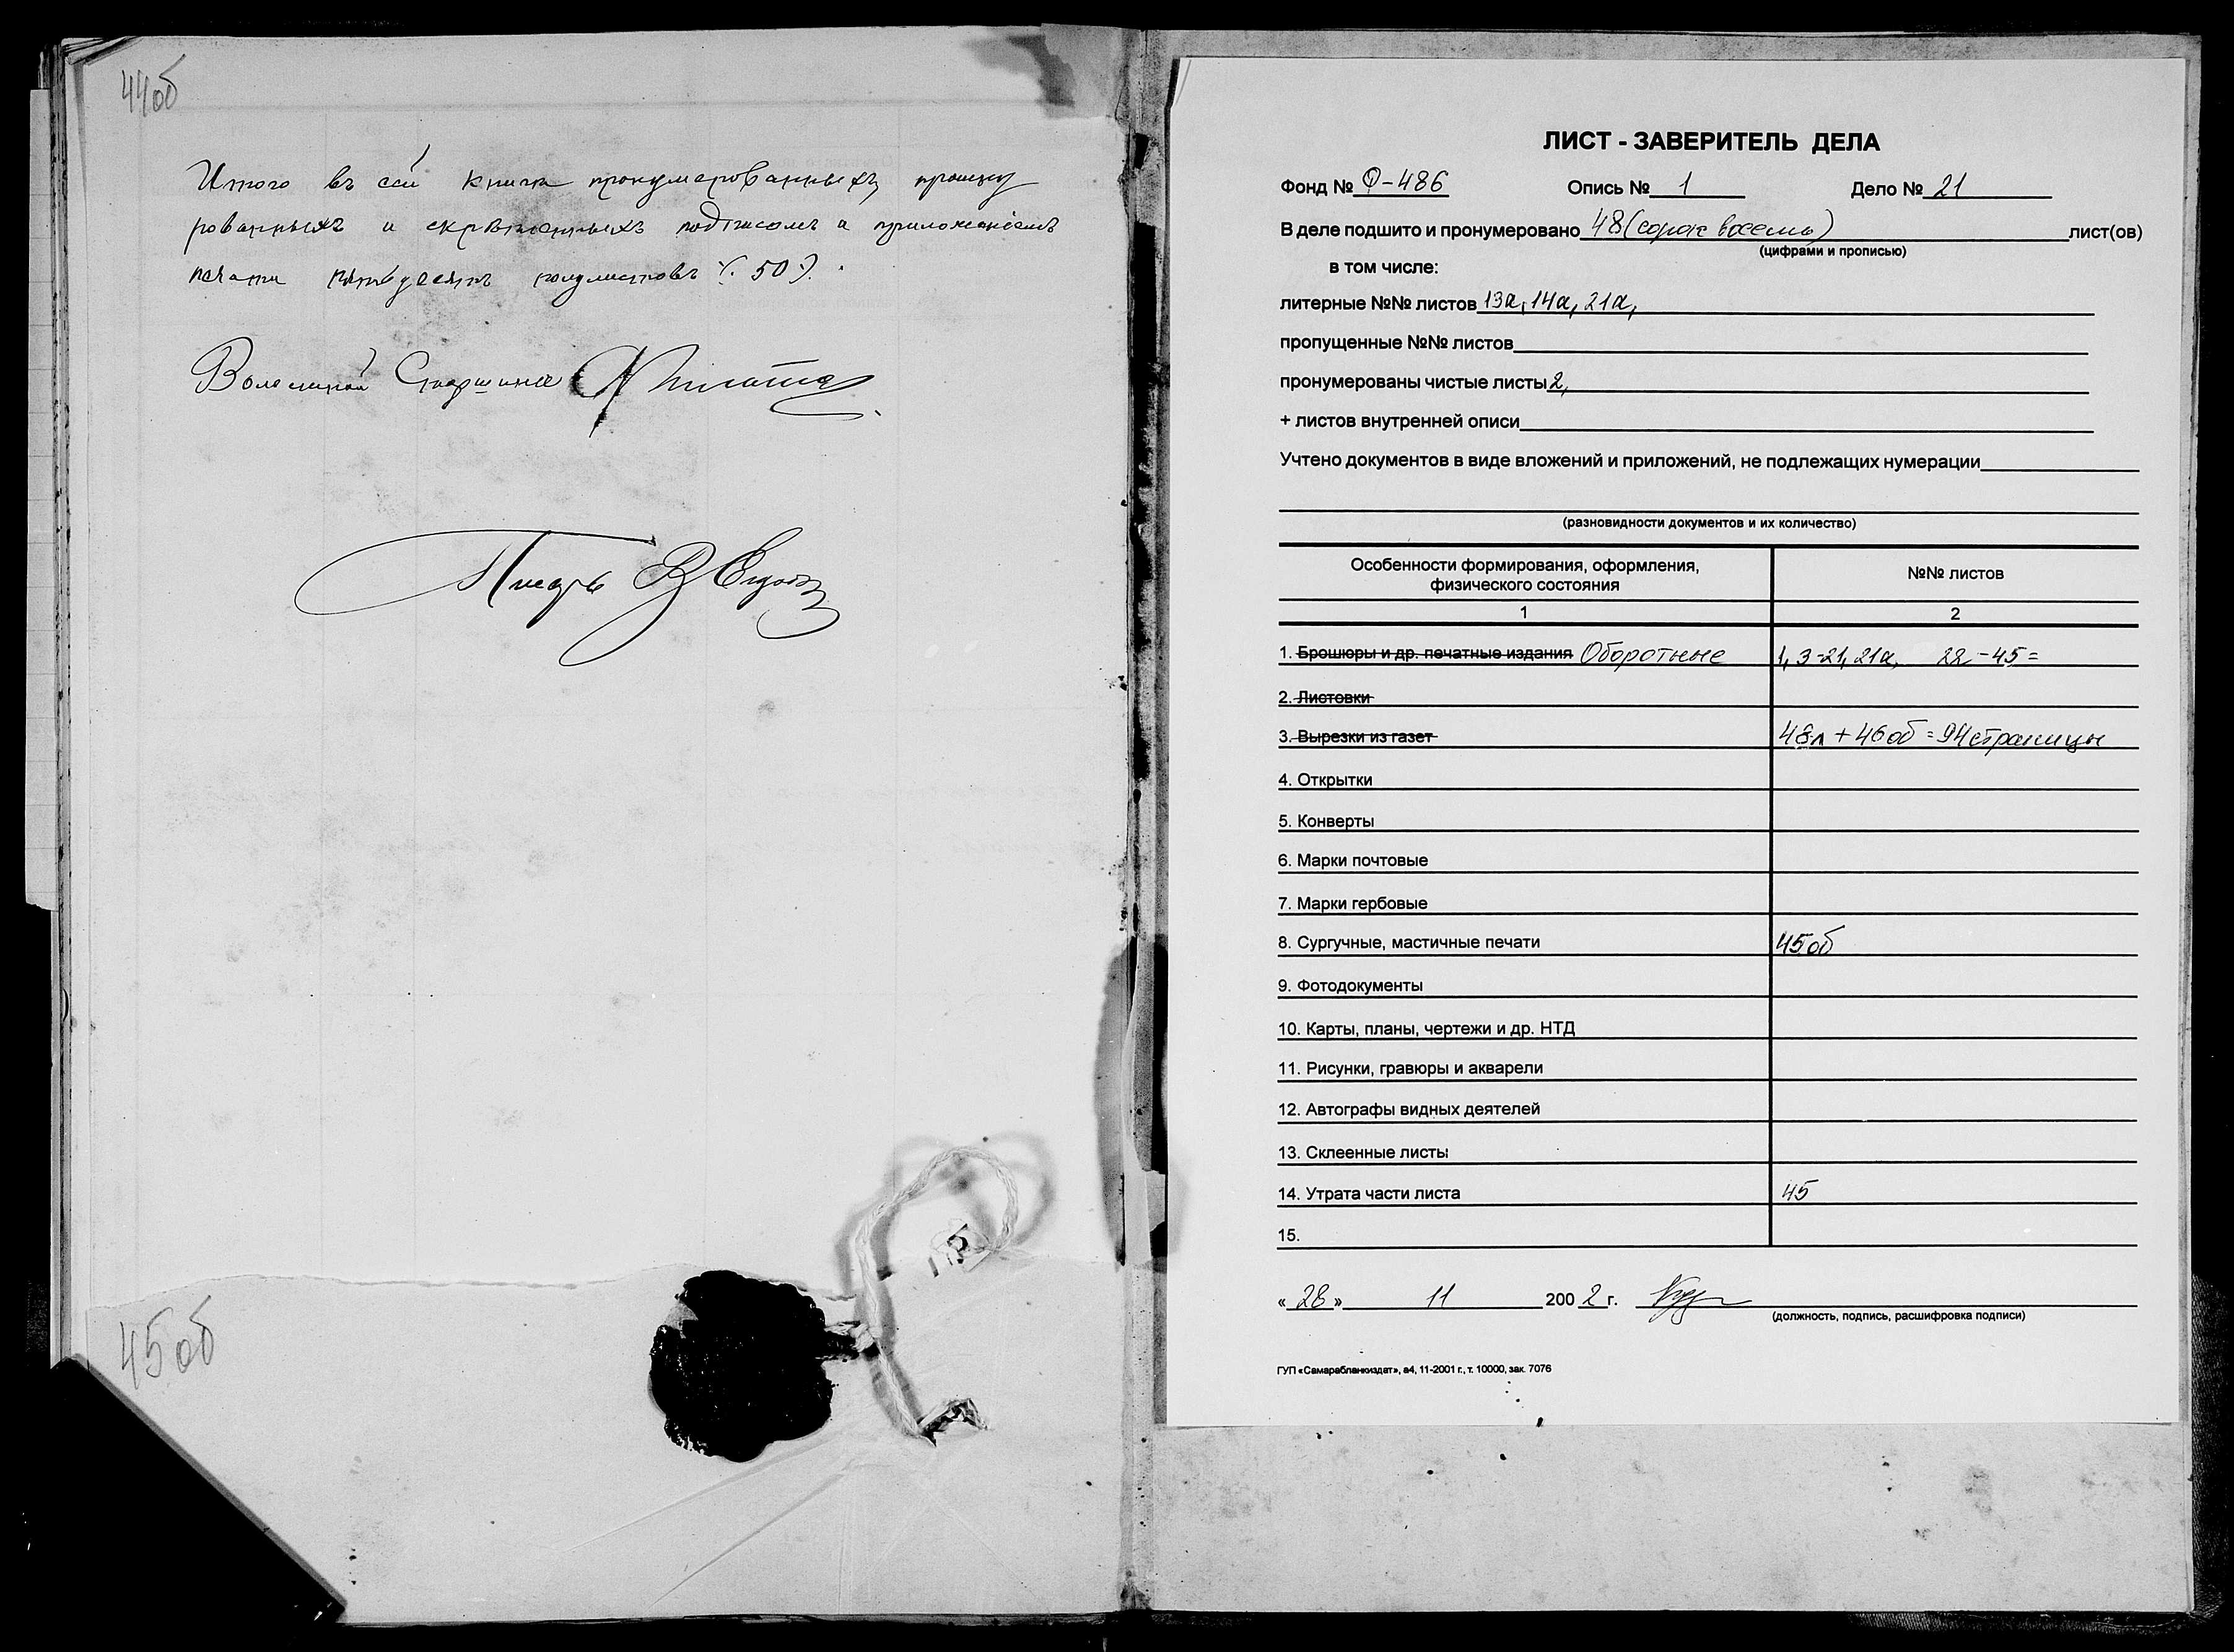 44об
Итого въ сей книги пронумерованныхъ, прошну
рованныхъ и скрѣпленныхъ подписомъ и приложеніемъ
печати пятьдесятъ полулистовъ (: 50 :).
Волостной Старшина
Писарь В
45об
ЛИСТ - ЗАВЕРИТЕЛЬ ДЕЛА
Фонд № Ф-486 Опись № 1 Дело № 21
В деле подшито и пронумеровано 48 (сорок восемь) лист(ов)
(цифрами и прописью)
в том числе:
литерные №№ листов 13а, 14а, 21а,
пропущенные №№ листов
пронумерованы чистые листы 2,
+ листов внутренней описи
Учтено документов в виде вложений и приложений, не подлежащих нумерации
(разновидности документов и их количество)
Особенности формирования, оформления, физического состояния №№ листов
1 2
1. Брошюры и др. печатные издания Оборотные 1, 3-21, 21а, 22-45=
2. Листовки
3. Вырезки из газет 48л + 46об = 94 страницы
4. Открытки
5. Конверты
6. Марки почтовые
7. Марки гербовые
8. Сургучные, мастичные печати 45об
9. Фотодокументы
10. Карты, планы, чертежи и др. НТД
11. Рисунки, гравюры и акварели
12. Автографы видных деятелей
13. Склеенные листы
14. Утрата части листа 45
15.
« 28 » 11 200 2 г.
(должность, подпись, расшифровка подписи)
ГУП «Самарабланкиздат», а4, 11-2001 г., т. 10000, зак. 7076